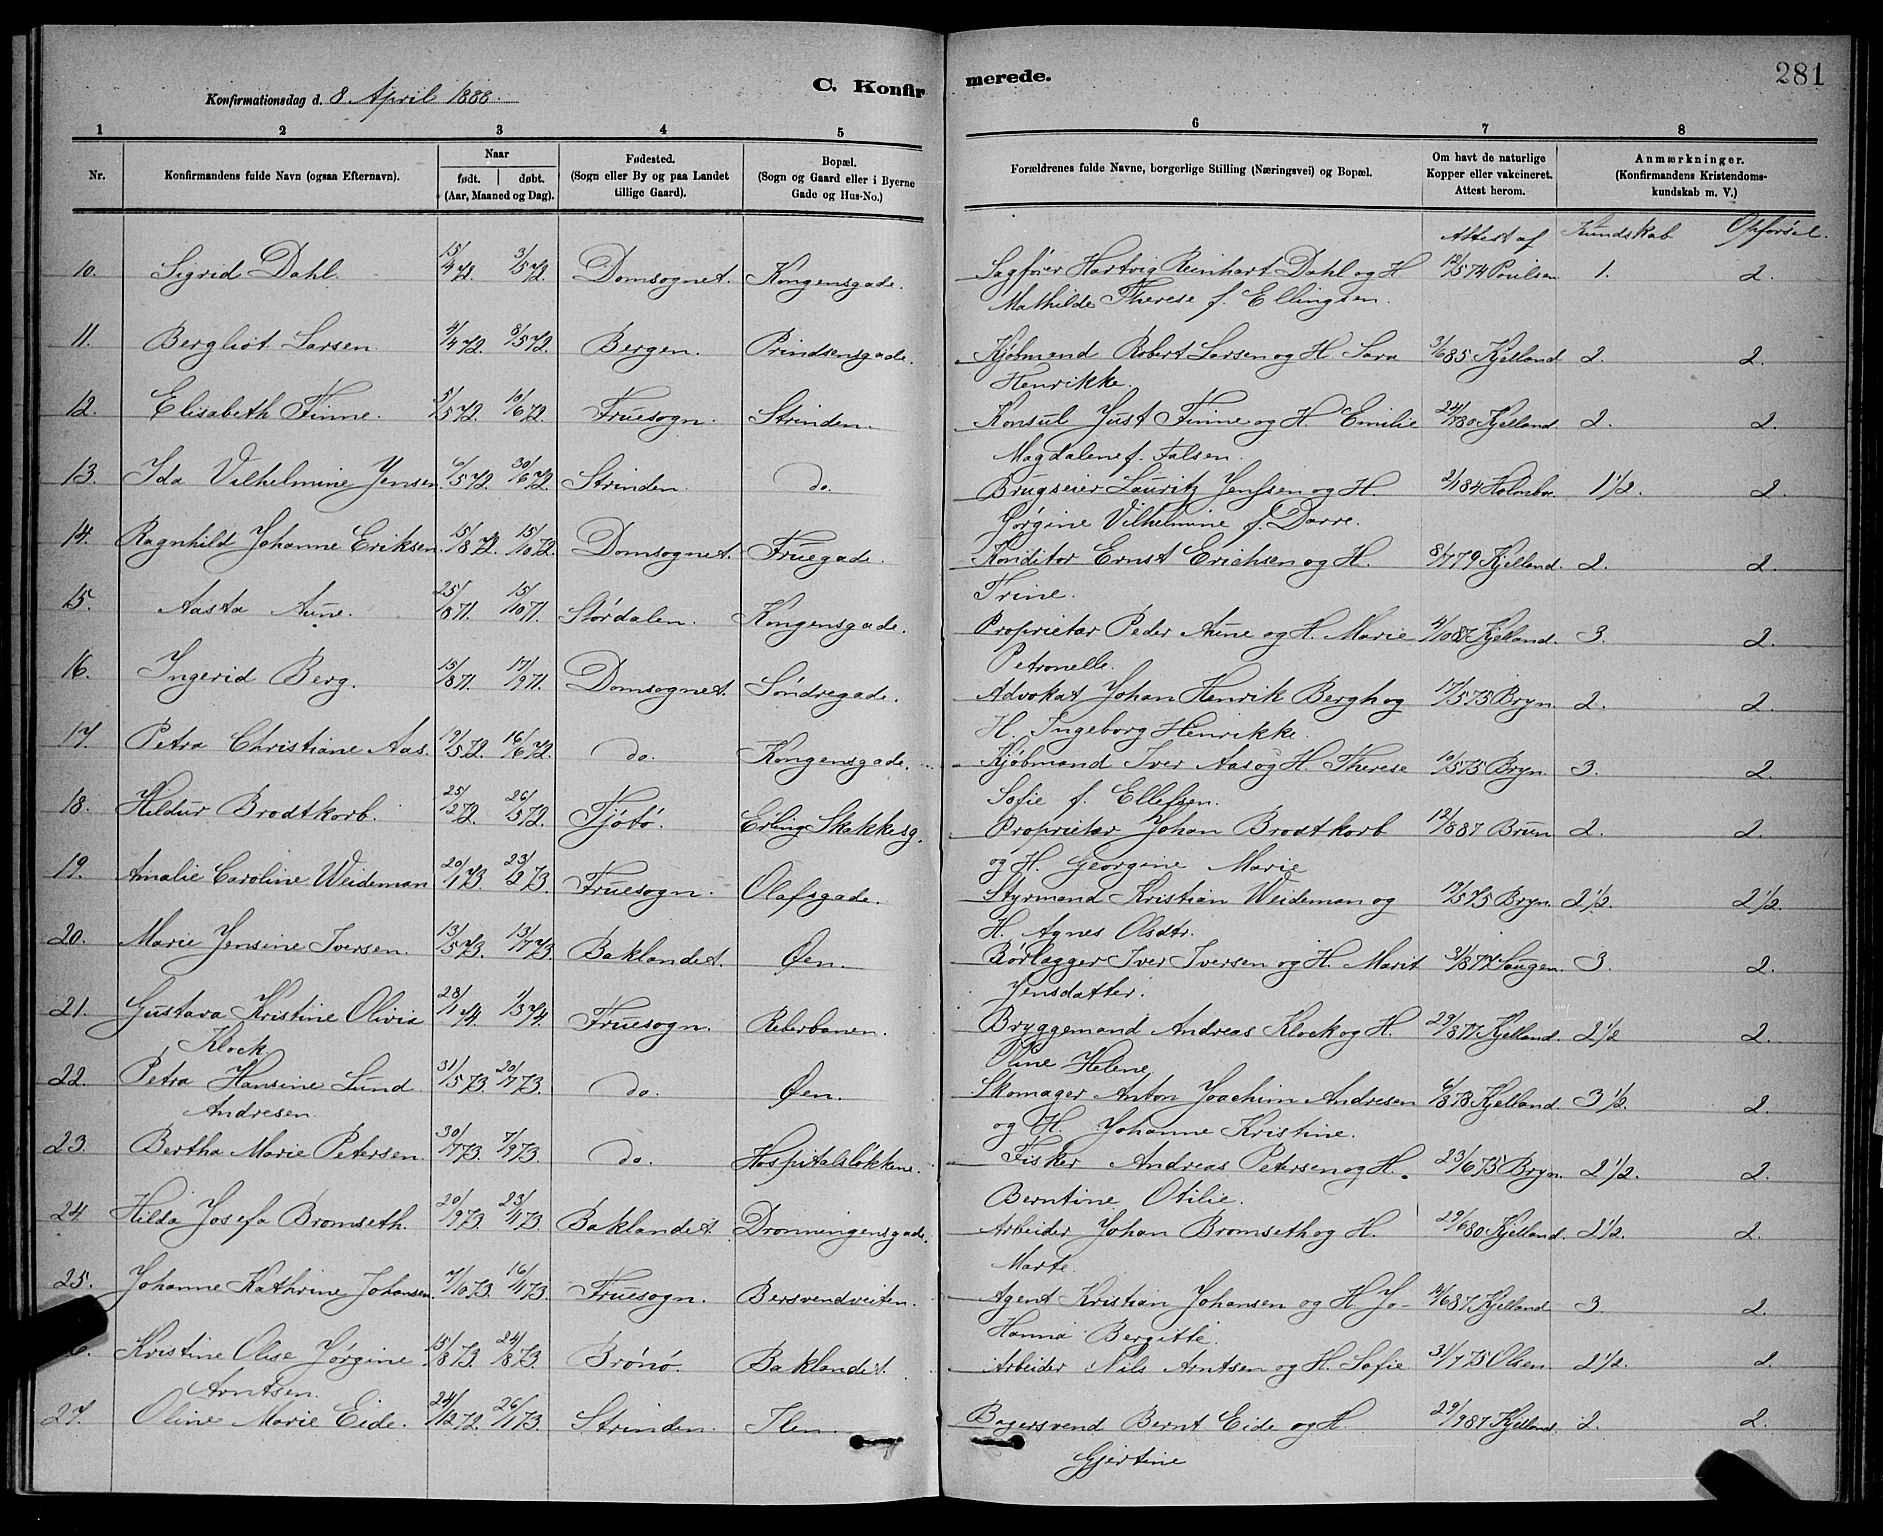 Konfirmationsdag d. 8 April 1888. C. Konfirmerede. 281
1 2 3 4 5 6 7 8
Nr. Konfirmandens fulde Navn (ogsaa Efternavn). Naar født. døbt. (Aar, Maaned og Dag). Fødested. (Sogn eller By og paa Landet tillige Gaard). Bopæl. (Sogn og Gaard eller i Byerne Gade og Hus-No.) Forældrenes fulde Navne, borgerlige Stilling (Næringsvei) og Bopæl. Om havt de naturlige Kopper eller vakcineret. Attest herom. Anmærkninger. (Konfirmandens Kristendomskundskab m. V.)
Attest af Kundskab Opførsel.
10. Sigrid Dahl. 15/4 72. 3/5 72. Domsognet. Kongensgade. Sagfører Hartvig Reinhart Dahl og H. 12/5 74 Poulsen 1. 2.
Mathilde Therese f. Ellingsen.
11. Bergliot Larsen. 4/4 72. 8/5 72. Bergen. Prindsensgade. Kjøbmend Robert Larsen og H. Sara 3/6 85 Kjelland 2. 2.
Henrikke.
12. Elisabeth Finne. 5/5 72. 10/6 72. Fruesogn. Strinden. Konsul Just Finne og H. Emilie 24/7 80 Kjelland. 2. 2.
Magdalene f. Falsen.
13. Ida Vilhelmine Jensen. 6/5 72. 30/6 72. Strinden. do. Brugseier Lauritz Jenssen og H. 2/1 84 Holmboe. 1 1/2. 2.
Jørgine Vilhelmine f. Darre.
14. Ragnhild Johanne Eriksen. 15/8 72. 15/10 72. Domsognet. Fruegade. Konditor Ernst Erichsen og H. 8/7 79 Kjelland. 2. 2.
Trine.
15. Aasta Aune. 25/8 71. 15/10 71. Stórdalen. Kongensgade. Proprietær Peder Aune og H. Marie 4/10 87 Kjelland. 3. 2.
Petronelle.
16. Ingerid Berg. 15/8 71. 17/9 71. Domsognet. Søndregade. Advokat Johan Henrik Bergh og 17/5 75 Bryn. 2. 2.
H. Ingeborg Henrikke.
17. Petra Christiane Aas. 9/5 72. 16/6 72. do. Kongensgade. Kjøbmand Iver Aas og H. Therese 10/5 75 Bryn. 3. 2.
Sofie f. Ellefsen.
18. Hildur Brodtkorb. 25/12 72. 26/5 72. Tjøtø. Erling Skakkesg. Proprietær Johan Brodtkorb 12/8 87 Brun 2. 2.
og H. Georgine Marie
19. Amalie Caroline Weideman 20/1 73. 23/2 73. Fruesogn. Olafsgade. Styrmand Kristian Weideman og 19/5 75 Bryn. 2 1/2. 2 1/2.
H. Agnes Olsdtr.
20. Marie Jensine Iversen. 13/5 73. 13/7 73. Baklandet. Øen. Rørlægger Iver Iversen og H. Marit 3/8 77 Saugen. 3. 2.
Jensdatter.
21. Gustava Kristine Olivia 28/1 74. 1/3 74. Fruesogn. Reberbanen. Bryggemand Andreas Klock og H. 29/8 77 Kjelland. 2 1/2 2.
Klock. Oline Helene.
22. Petra Hansine Lund 31/5 73. 20/7 73. do. Øen. Skomager Anton Joachim Andresen 6/8 78 Kjelland. 3 1/2. 2.
Andresen. og H. Johanne Kristine.
23. Bertha Marie Petersen. 30/7 73. 7/9 73. do. Hospitalsløkken. Fisker Andreas Petersen og H. 23/6 75 Bryn. 2 1/2. 2.
Berntine Otilie.
24. Hilda Josefa Bromseth. 20/9 73. 23/11 73. Baklandet. Dronningensgade. Arbeider Johan Bromseth og H. 29/6 80 Kjelland. 2 1/2. 2.
Marte.
25. Johanne Kathrine Johansen. 7/10 73. 16/11 73. Fruesogn. Bersvendveiten. Agent Kristian Johansen og H. Jo- /6 87 Kjelland 3. 2.
Hanna Bergitte.
6. Kristine Olise Jørgine 15/8 73. 24/8 73. Brønø. Baklandet. Arbeider Nils Arntsen og H. Sofie 31/7 75 Olsen 2 1/2. 2.
Arntsen.
27. Oline Marie Eide. 24/12 72. 26/1 73. Strinden. Ilen. Bagersvend Bernt Eide og H. 29/9 87 Kjelland. 2. 2.
Gjertine